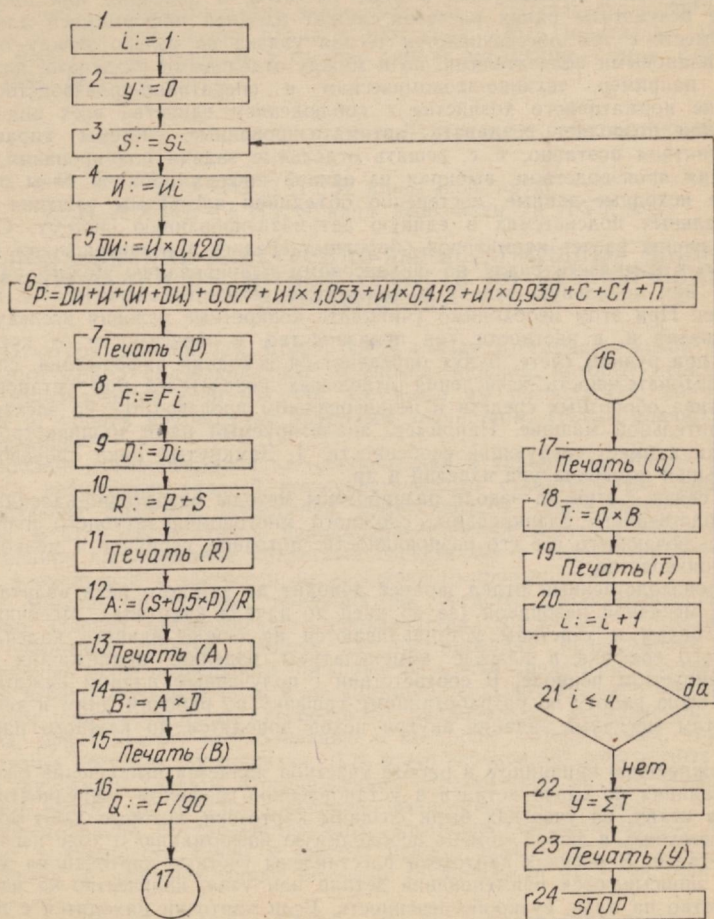 1
i:=1
2
y:=0
3
S:=Si
4
И:=Иi
5
DИ:=И×0,120
6
P:=DИ+И+(И1+DИ)+0,077+И1×1,053+И1×0,412+И1×0,939+C+C1+П
7
Печать (P)
8
F:=Fi
9
D:=Di
10
R:=P+S
11
Печать (R)
12
A:=(S+0,5×P)/R
13
Печать (A)
14
B:=A×D
15
Печать (B)
16
Q:=F/90
17
16
17
Печать (Q)
18
T:=Q×B
19
Печать (T)
20
i:=i+1
21
i≤4
да
нет
22
У=ΣT
23
Печать (У)
24
STOP